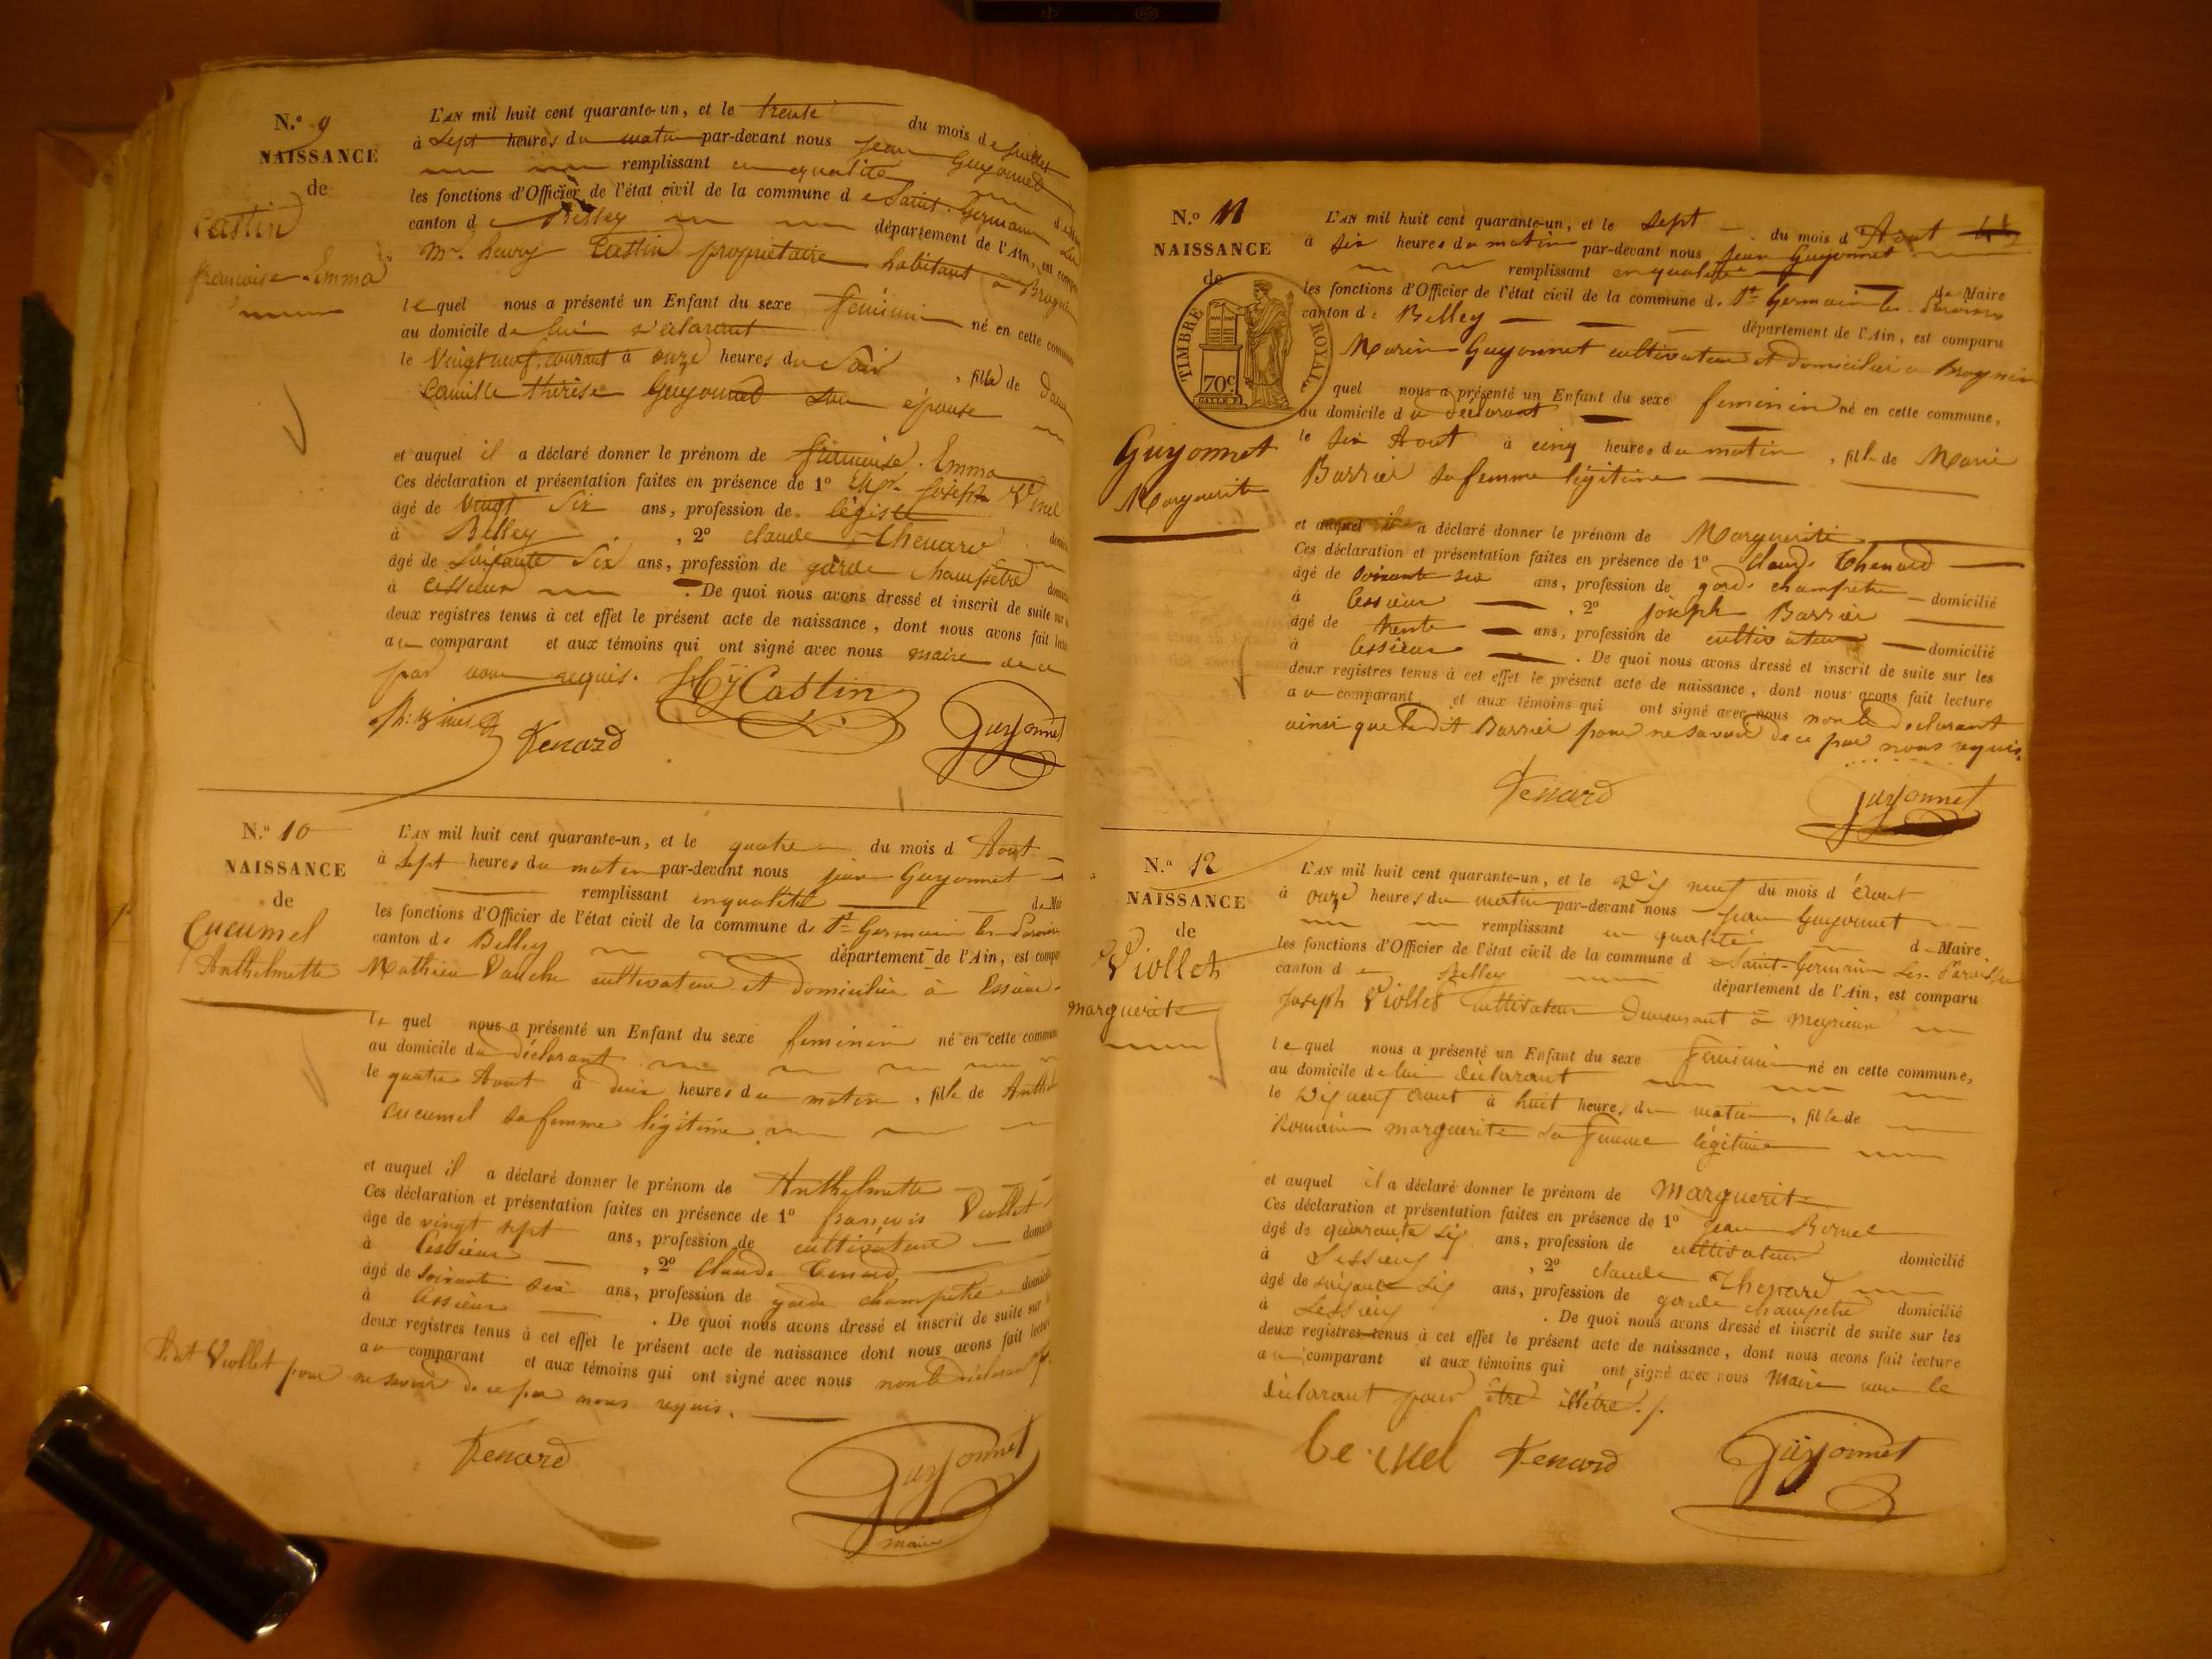 N.o 9
NAISSANCE
de
Castin
françoise-Emma
L'AN mil huit cent quarante-un, et le trente du mois de juillet
à sept heures du matin par-devant nous jean Guyonnet
remplissant en qualité
les fonctions d'Officier de l'état civil de la commune de Saint-Germain
canton de Belley département de l'Ain, est
Mr. henry Castin propriétaire habitant à
lequel nous a présenté un Enfant du sexe féminin né en cette
au domicile de lui déclarant
le Vingt neuf courant à onze heures du soir, fille de
Camille thérèse Guyonnet son épouse
et auquel il a déclaré donner le prénom de françoise. Emma
Ces déclaration et présentation faites en présence de 1o joseph
âgé de vingt six ans, profession de légiste
à Belley, 2o claude Thenard
âgé de soixante six ans, profession de garde champêtre
à Cessieux. De quoi nous avons dressé et inscrit de suite sur
deux registres tenus à cet effet le présent acte de naissance, dont nous avons fait
au comparant et aux témoins qui ont signé avec nous maire de ce
par nous requis. Hy Castin
Tenard Guyonnet
N.o 10
NAISSANCE
de
Cucumel
Anthelmette
L'AN mil huit cent quarante-un, et le quatre du mois d Aout
à sept heures du matin par-devant nous jean Guyonnet
remplissant en qualité
les fonctions d'Officier de l'état civil de la commune de St Germain les
canton de Belley département de l'Ain, est
Mathieu cultivateur et domicilié à Essieux
le quel nous a présenté un Enfant du sexe feminin né en cette
au domicile du déclarant
le quatre Aout à deux heures du matin, fille de
cucumel sa femme légitime
et auquel il a déclaré donner le prénom de Anthelmette
Ces déclaration et présentation faites en présence de 1o françois Viollet
âgé de vingt sept ans, profession de cultivateur
à Cessieux, 2o Claude Tenard
âgé de soixante six ans, profession de garde champêtre
à Cessieux. De quoi nous avons dressé et inscrit de suite sur
deux registres tenus à cet effet le présent acte de naissance dont nous avons fait
au comparant et aux témoins qui ont signé avec nous non le déclarant
Viollet pour ne savoir de ce par nous requis.
Tenard Guyonnet
maire
N.o 11
NAISSANCE
de
TIMBRE ROYAL
70c
Guyonnet
Marguerite
L'AN mil huit cent quarante-un, et le sept du mois d Aout
à six heures du matin par-devant nous jean Guyonnet
remplissant en qualité de Maire
les fonctions d'Officier de l'état civil de la commune de St Germain les Paroisses
canton de Belley département de l'Ain, est comparu
Marin Guyonnet cultivateur et domicilié à Brognin
quel nous a présenté un Enfant du sexe feminin né en cette commune,
au domicile du déclarant
le six Aout à cinq heures du matin, fille de Marie
Barrier sa femme légitime
et auquel il a déclaré donner le prénom de Marguerite
Ces déclaration et présentation faites en présence de 1o Claude Thenard
âgé de soixante six ans, profession de garde champetre domicilié
à Cessieux, 2o joseph Barrier
âgé de trente ans, profession de cultivateur domicilié
à Cessieux. De quoi nous avons dressé et inscrit de suite sur les
deux registres tenus à cet effet le présent acte de naissance, dont nous avons fait lecture
au comparant et aux témoins qui ont signé avec nous non le déclarant
ainsi que le dit Barrier pour ne savoir de ce par nous requis.
Tenard Guyonnet
N.o 12
NAISSANCE
de
Viollet
marguerite
L'AN mil huit cent quarante-un, et le Dix neuf du mois d'Aout
à onze heures du matin par-devant nous jean Guyonnet
remplissant en qualité de Maire
les fonctions d'Officier de l'état civil de la commune d Saint-Germain Les-Paroisses
canton de Belley département de l'Ain, est comparu
Joseph Viollet cultivateur demeurant à meyrieux
lequel nous a présenté un Enfant du sexe féminin né en cette commune,
au domicile de lui déclarant
le Dix neuf aout à huit heures du matin, fille de
Romain marguerite sa femme légitime
et auquel il a déclaré donner le prénom de Marguerite
Ces déclaration et présentation faites en présence de 1o jean Bornel
âgé de quarante six ans, profession de cultivateur domicilié
à Cessieux, 2o claude Thenard
âgé de soixante six ans, profession de garde champetre domicilié
à Cessieux. De quoi nous avons dressé et inscrit de suite sur les
deux registres tenus à cet effet le présent acte de naissance, dont nous avons fait lecture
au comparant et aux témoins qui ont signé avec nous Maire non le
déclarant pour être illétré./.
Tenard Guyonnet